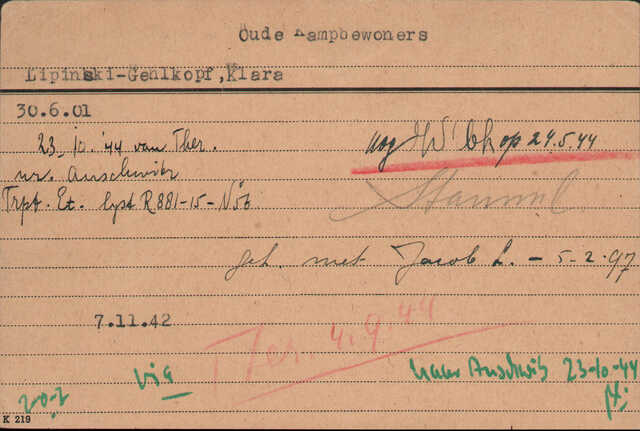 Oude Kampbewoners
Lipinski-Gehlkopf,Klara
30.6.01
23-10.'44 van Ther.
nr. Auschwitz
Trpt. Et. lyst R 881-15-
nog op 24.5.44
geh. met Jacob L. - 5-2.97
7.11.42
Ther 4.9.44
via
naar Auschwitz 23-10-44
202
K 219